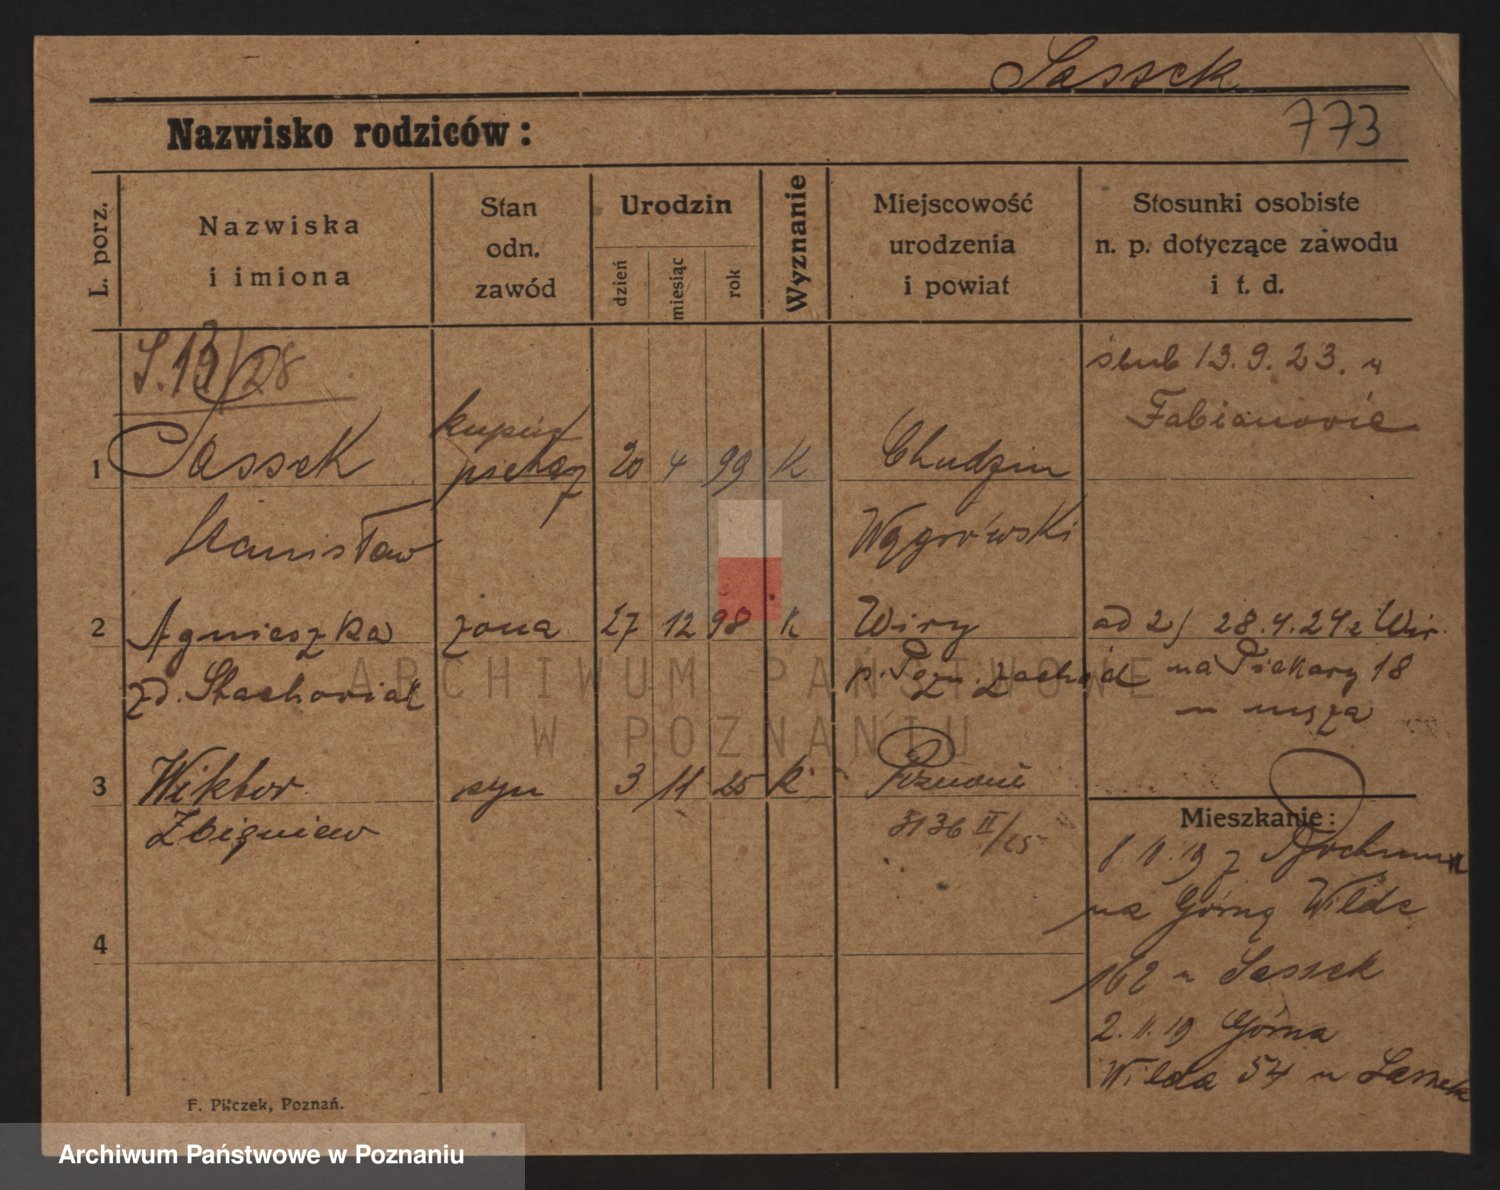 Sassek
Nazwisko rodziców:
773
L. porz.
Nazwiska
i imiona
Stan
odn.
zawód
Urodzin
dzień
miesiąc
rok
Wyznanie
Miejscowość
urodzenia
i powiat
Stosunki osobiste
n. p. dotyczące zawodu
i t. d.
ślub 13.9.23. w
Fabianowie
1 Sassek
20 4 99 K Chudzin
Stanisław
Wągrówski
2 Agnieszka żona 27 12 98 K Wiry
zd. Stachowiak p. Pozn. zachód
ad 2) 28.4.24 z Wir.
na Piekary 18
u męża
3 Wiktor syn 3 11 25 K Poznań
Zbigniew 3136 II/25
Mieszkanie:
na Górną Wildę
162 u Sassek
2.11.19 Górna
Wilda 54 u Sassek
4
F. Pilczek, Poznań.
ARCHIWUM PAŃSTWOWE
W POZNANIU
Archiwum Państwowe w Poznaniu